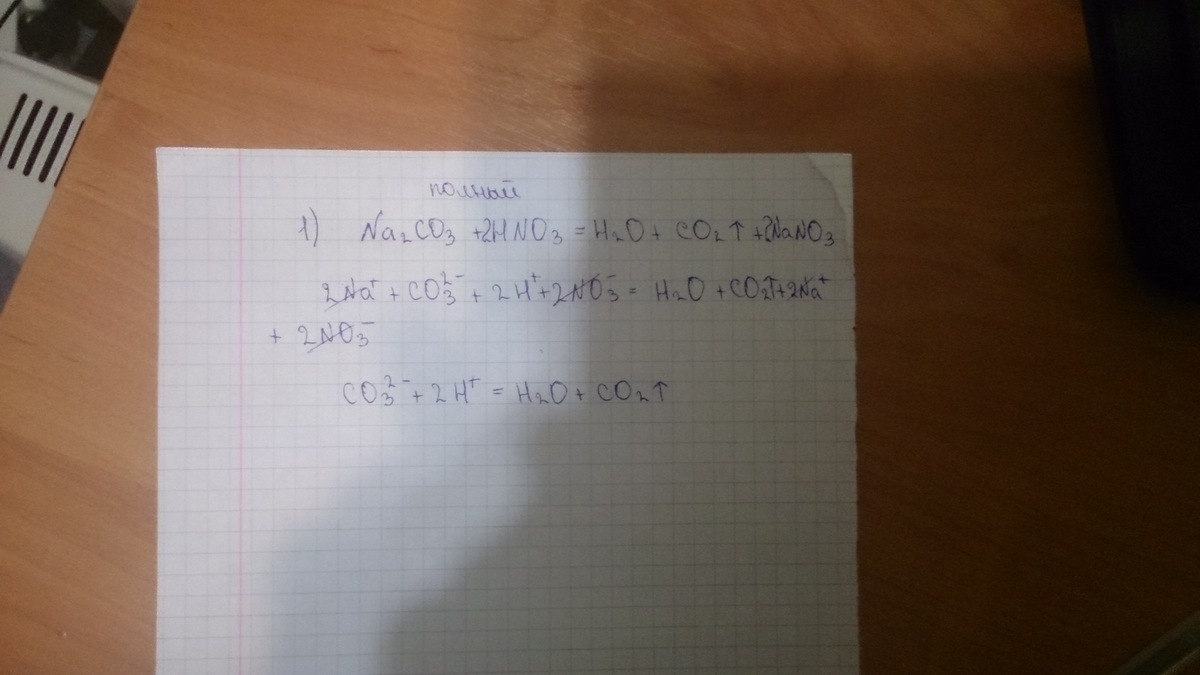 полный
1) Na₂CO₃ +2HNO₃ = H₂O + CO₂↑ +2NaNO₃
2Na⁺ + CO₃²⁻ + 2H⁺ + 2NO₃⁻ = H₂O + CO₂↑ + 2Na⁺
+ 2NO₃⁻
CO₃²⁻ + 2H⁺ = H₂O + CO₂↑